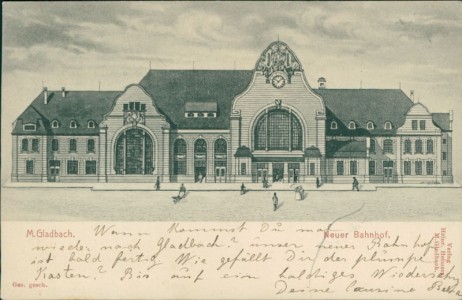 M. Gladbach.
Neuer Bahnhof.
Wann kommst Du mal
wieder nach Gladbach? unser neuer Bahnhof
ist bald fertig Wie gefällt Dir der plumpe
Kasten? Bis auf ein baldiges Wiedersehn
Deine cousine
Ges. gesch.
Verlag
M. Gladbach.